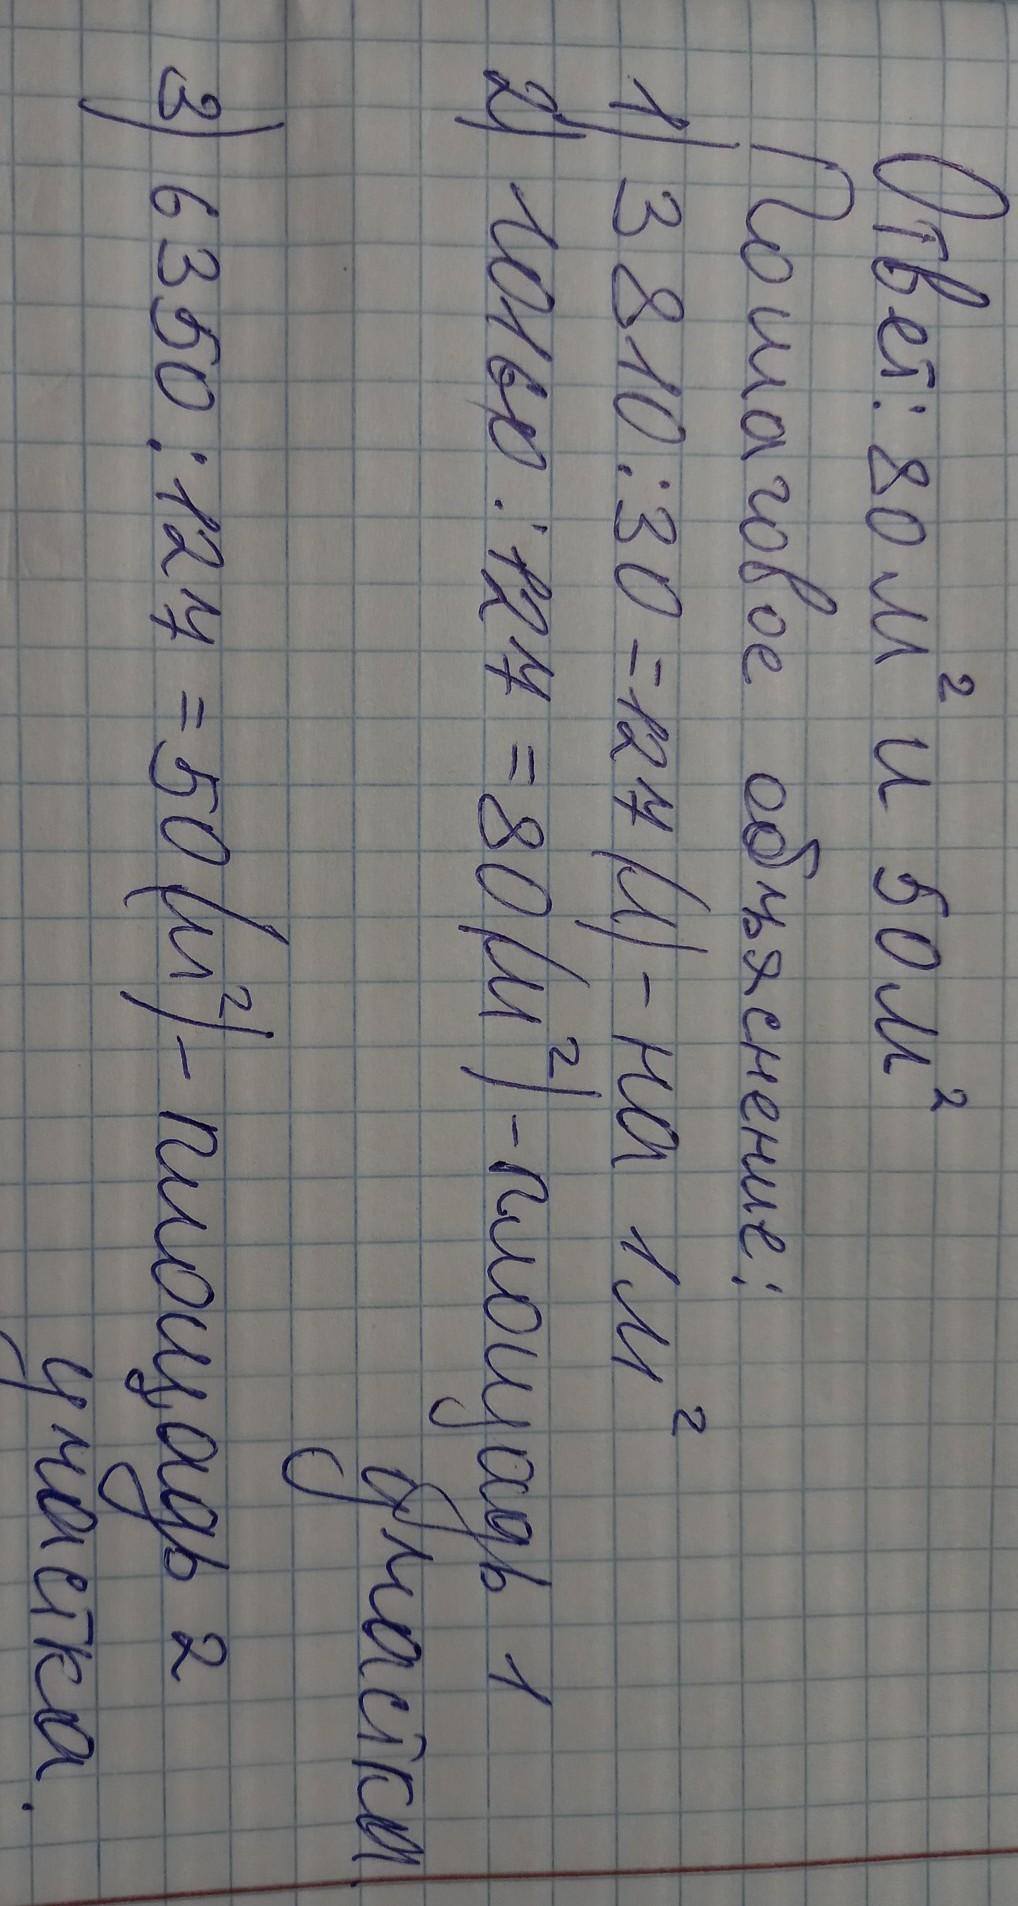 Ответ: 80 м² и 50 м²
Пошаговое объяснение:
1) 3810 : 30 = 127 (м) - на 1 м²
2) 10160 : 127 = 80 (м²) - площадь 1
участка.
3) 6350 : 127 = 50 (м²) - площадь 2
участка.